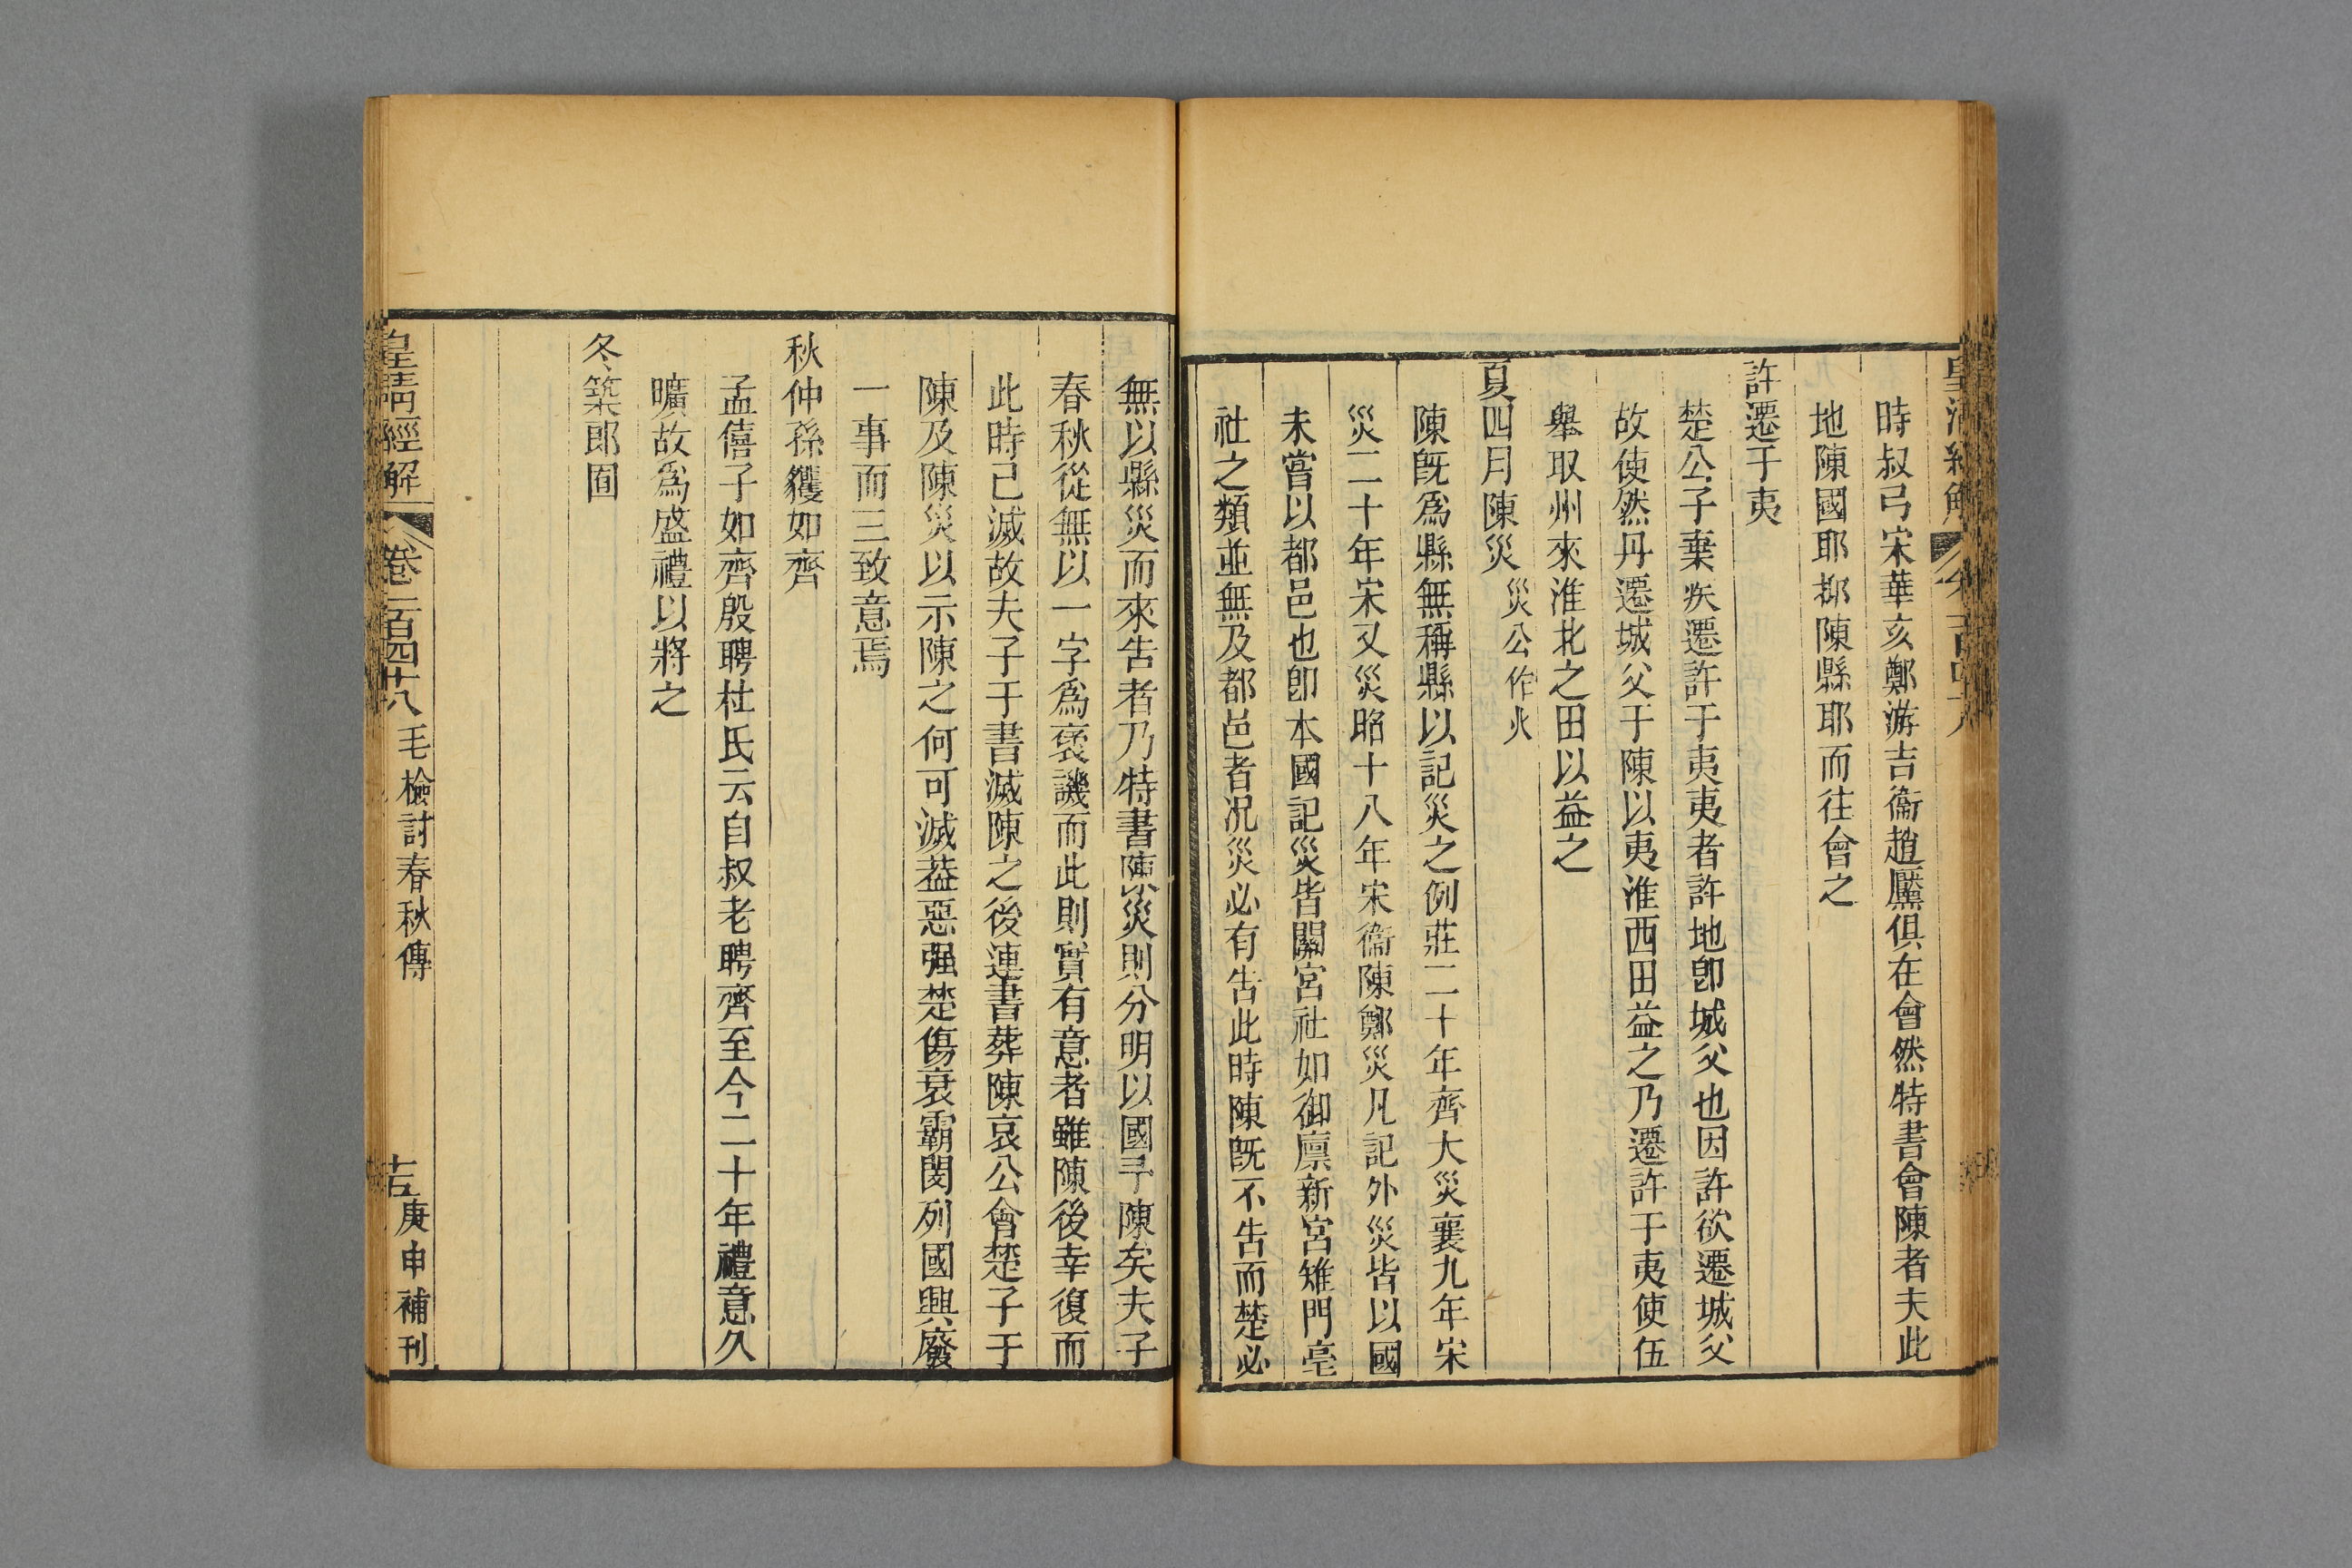 時叔弓宋華亥鄭游吉衞趙黶俱在會然特書會陳者夫此
地陳國耶抑陳縣耶而往會之
許遷于夷
楚公子棄疾遷許于夷夷者許地卽城父也因許欲遷城父
故使然丹遷城父于陳以夷淮西田益之乃遷許于夷使伍
舉取州來淮北之田以益之
夏四月陳災 災公作火
陳旣爲縣無稱縣以記災之例莊二十年齊大災襄九年宋
災三十年宋又災昭十八年宋衞陳鄭災凡記外災皆以國
未嘗以都邑也卽本國記災皆關宮社如御廩新宮雉門亳
社之類並無及都邑者况災必有告此時陳旣不告而楚必
無以縣災而來告者乃特書陳災則分明以國予陳矣夫子
春秋從無以一字爲褒譏而此則實有意者雖陳後幸復而
此時已滅故夫子于書滅陳之後連書葬陳哀公會楚子于
陳及陳災以示陳之何可滅葢惡强楚傷衰霸閔列國興廢
一事而三致意焉
秋仲孫貜如齊
孟僖子如齊殷聘杜氏云自叔老聘齊至今二十年禮意久
曠故爲盛禮以將之
冬築郎囿
皇淸經解 卷一百四十八 毛檢討春秋傳 庚申補刊